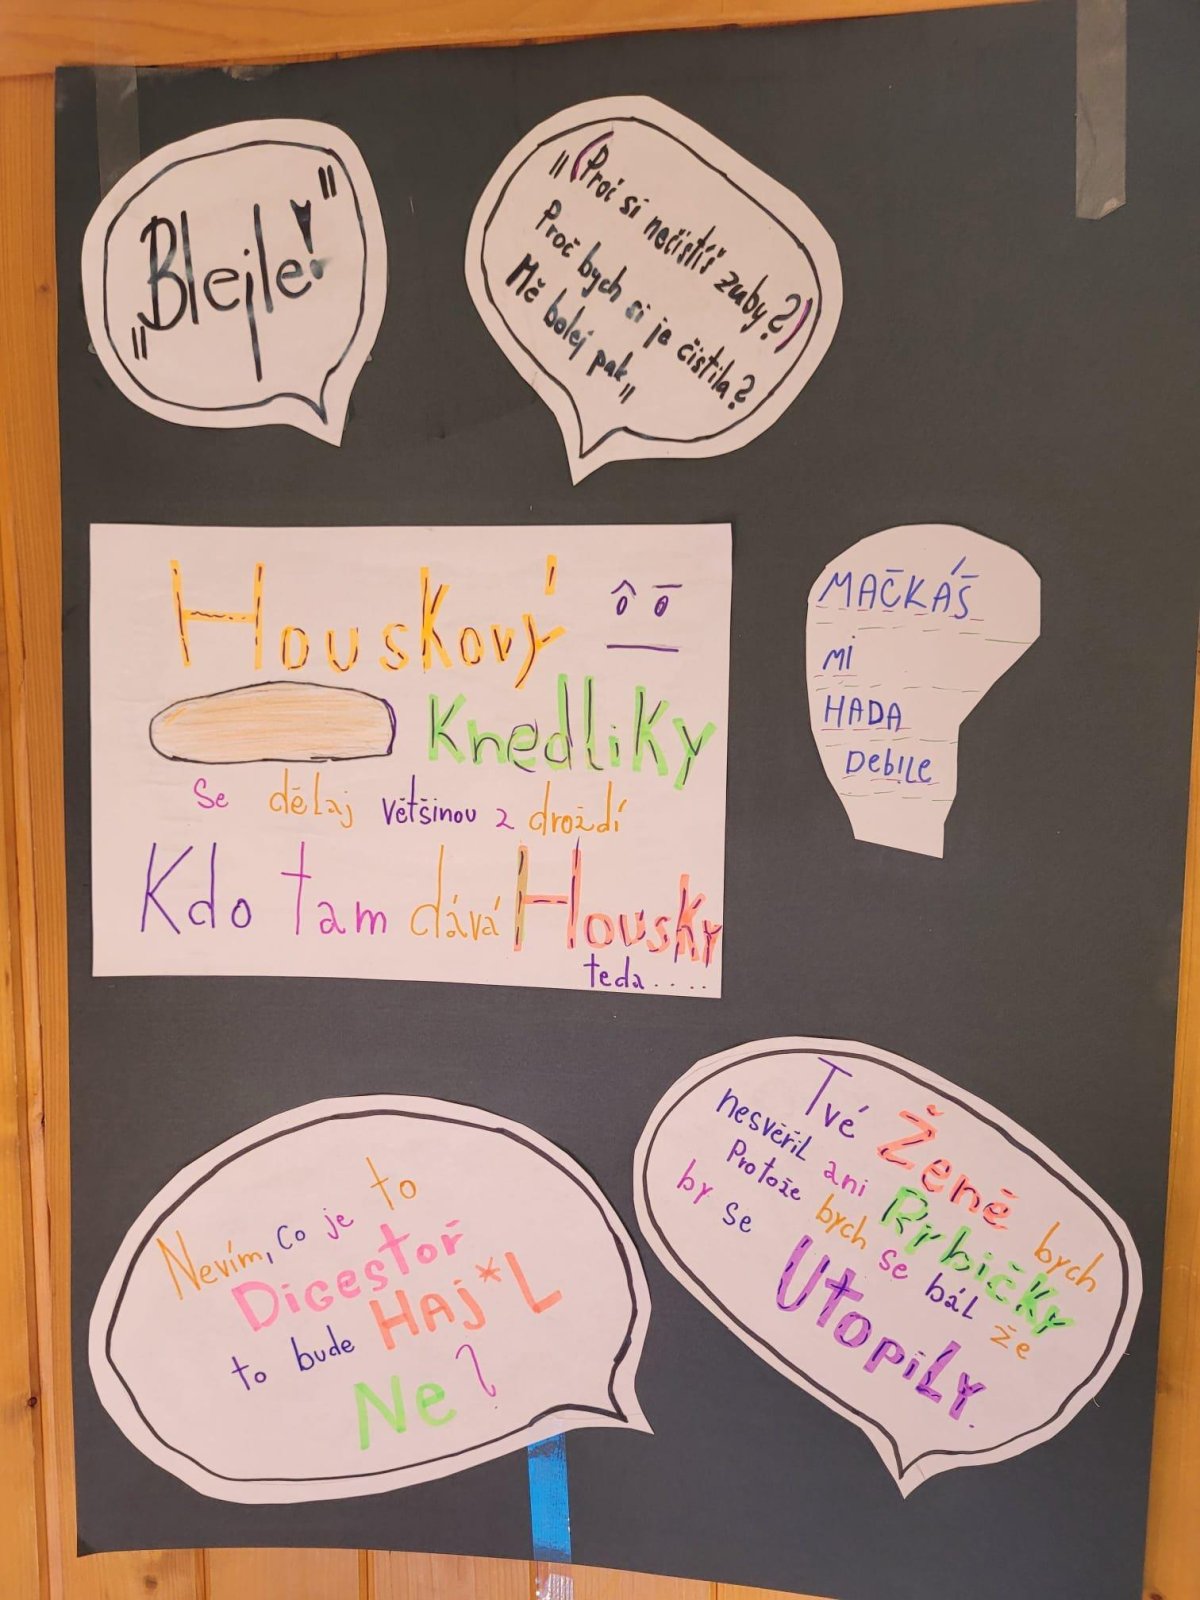 „Blejle!"
„(Proč si nečistíš zuby?)
Proč bych si je čistila?
Mě bolej pak"
Houskový
Knedliky
se dělaj většinou z droždí
Kdo tam dává Housky
teda....
MAČKÁŠ
Mi
HADA
DebiLE
Nevím, co je to
DigestoŘ
to bude HAJ*L
Ne?
Tvé Ženě bych
nesvěřil ani Rybičky
Protože bych se bál že
by se UtopiLy.